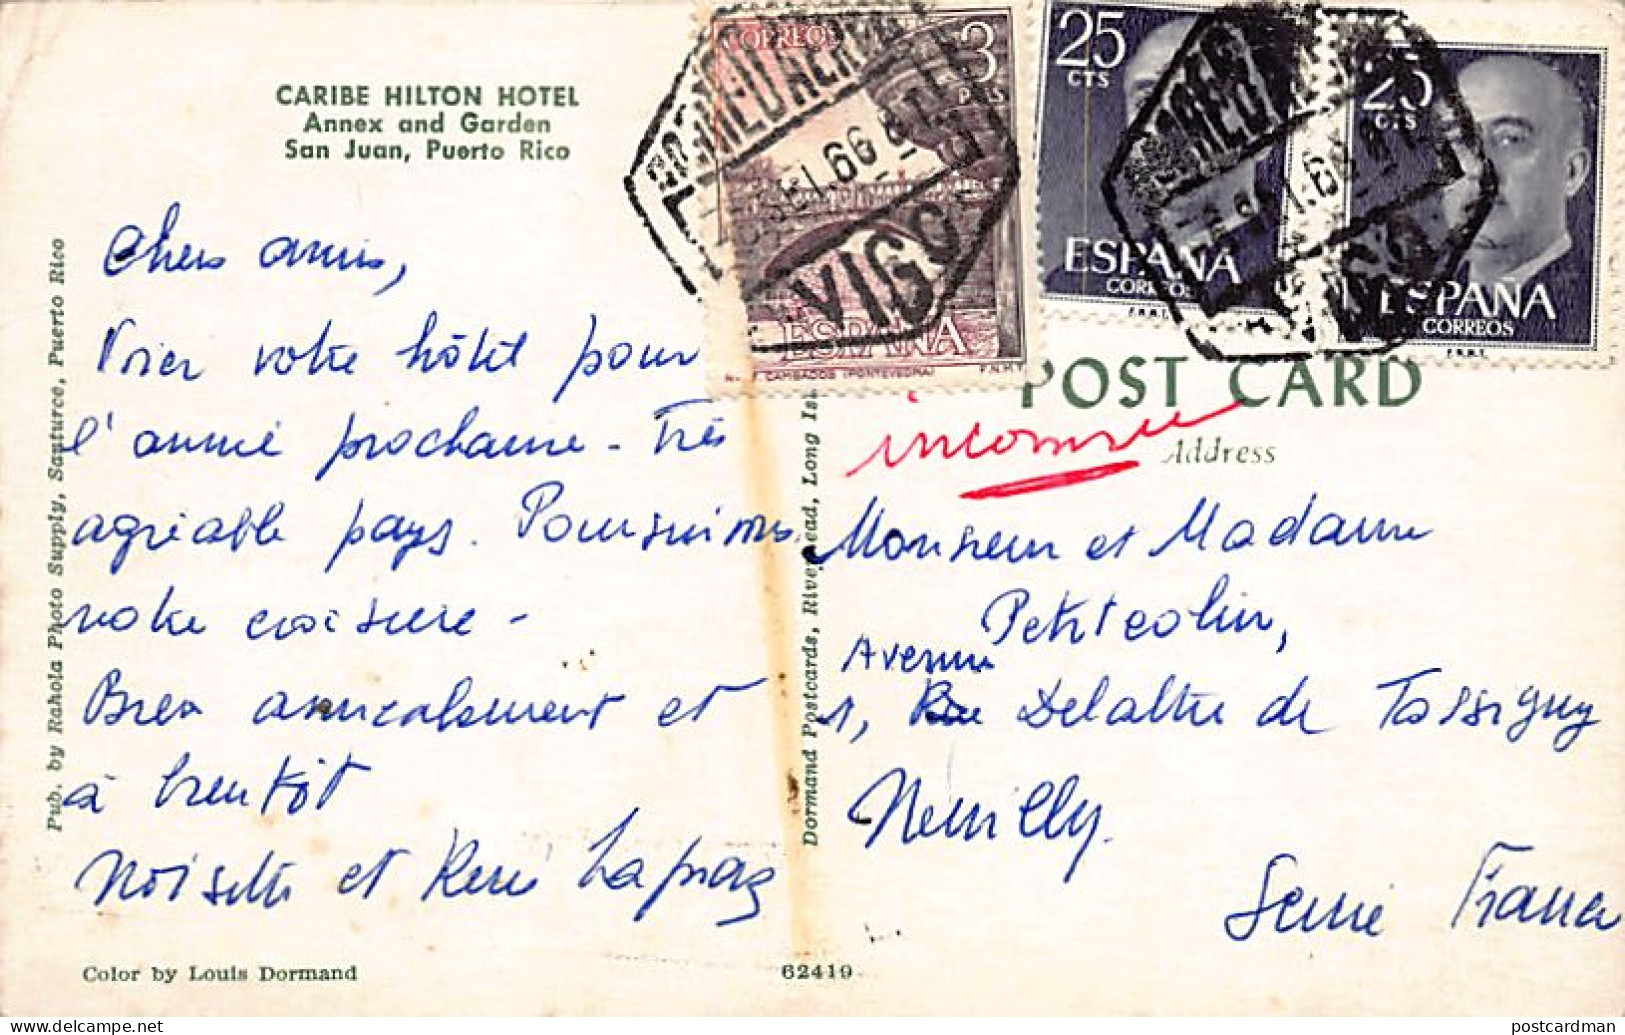 CARIBE HILTON HOTEL
Annex and Garden
San Juan, Puerto Rico
Chers amis,
Voici votre hôtel pour
l'année prochaine - Très
agréable pays. Poursuivons
notre croisière -
Bien amicalement et
à bientôt
Noisette et René Lapraz
Color by Louis Dormand
Pub. by Rahola Photo Supply, Santurce, Puerto Rico
Dormand Postcards, Riverhead, Long Is
62419
CORREOS
3
PTS
ESPAÑA
CAMBADOS (PONTEVEDRA)
F.N.M.T.
CORREO AEREO
66
VIGO
25
CTS
ESPAÑA
CORREOS
25
CTS
ESPAÑA
CORREOS
POST CARD
Address
inconnu
Monsieur et Madame
Petitcolin,
Avenue
1, Rue Delattre de Tassigny
Neuilly
Seine France
postcardman